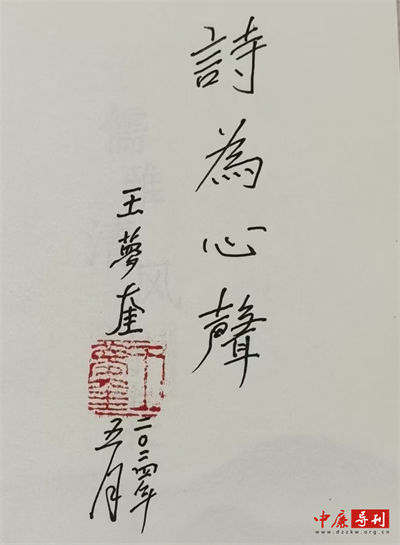 詩為心聲
王夢奎
二〇二四年
五月
中廉导刊
www.dzzkw.org.cn